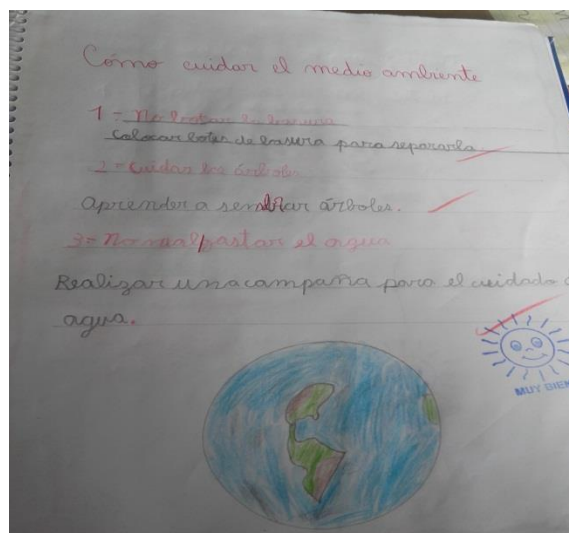 Cómo cuidar el medio ambiente
1= No botar la basura
Colocar botes de basura para separarla.
2= Cuidar los árboles
Aprender a sembrar árboles.
3= No malgastar el agua
Realizar una campaña para el cuidado
agua.
MUY BIEN